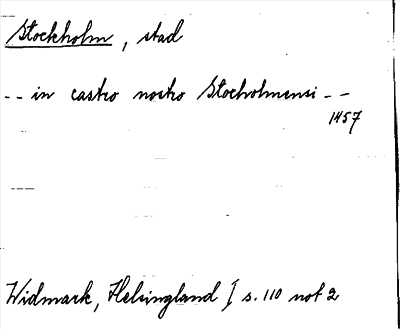 Stockholm, stad
-- in castro nostro Stocholmensi --
1457
Widmark, Helsingland I s. 110 not 2